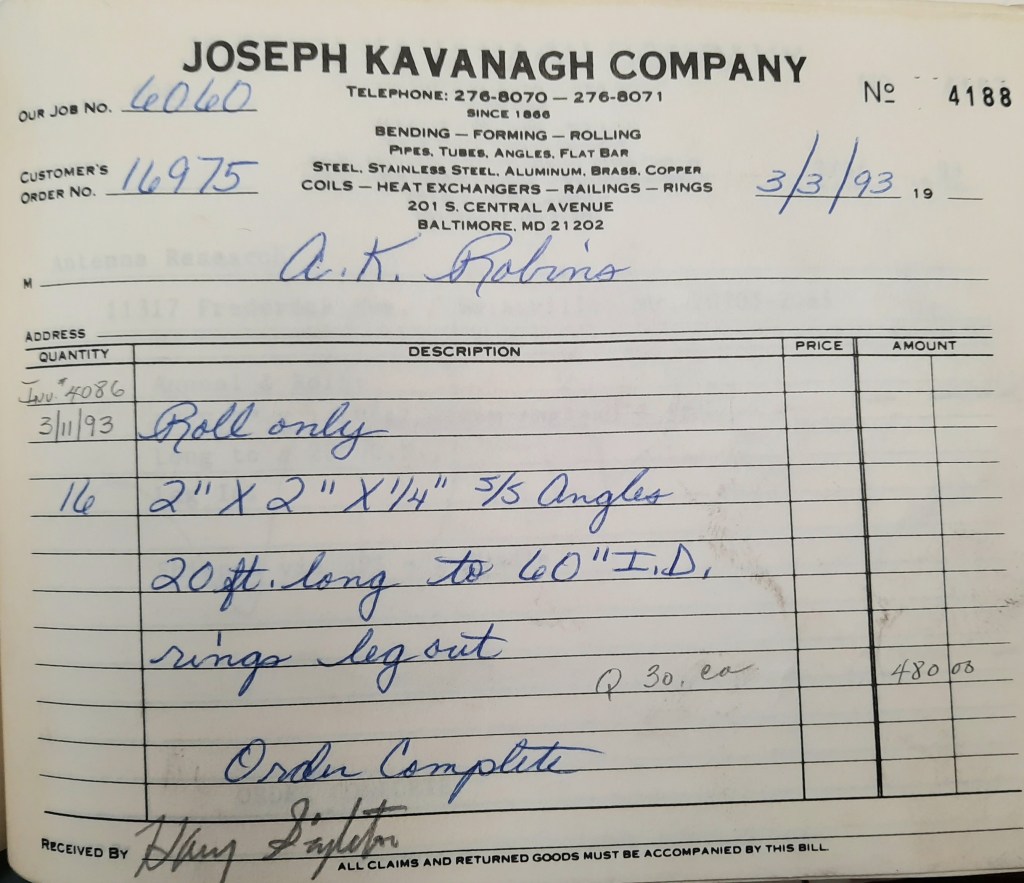 JOSEPH KAVANAGH COMPANY
TELEPHONE: 276-8070 — 276-8071
SINCE 1866
BENDING — FORMING — ROLLING
PIPES, TUBES, ANGLES, FLAT BAR
STEEL, STAINLESS STEEL, ALUMINUM, BRASS, COPPER
COILS — HEAT EXCHANGERS — RAILINGS — RINGS
201 S. CENTRAL AVENUE
BALTIMORE, MD 21202
OUR JOB NO. 6060
CUSTOMER'S
ORDER NO. 16975
Nº 4188
3/3/93 19
M A.K. Robins
ADDRESS
QUANTITY DESCRIPTION PRICE AMOUNT
Inv. # 4086
3/11/93 Roll only
16 2" X 2" X 1/4" S/S Angles
20 ft. long to 60" I.D.
rings leg out
@ 30. ea 480 00
Order Complete
RECEIVED BY Harry Singleton
ALL CLAIMS AND RETURNED GOODS MUST BE ACCOMPANIED BY THIS BILL